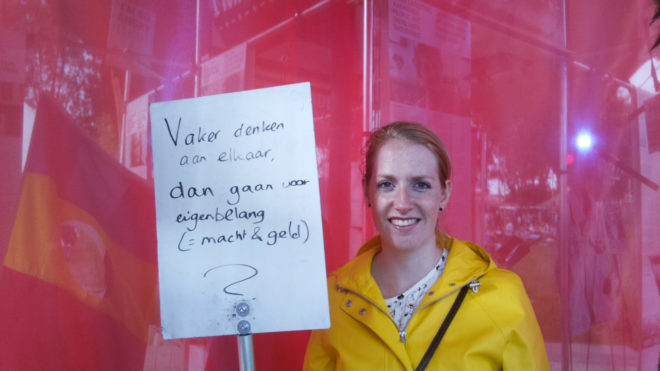 Vaker denken
aan elkaar,
dan gaan voor
eigenbelang
(= macht & geld)